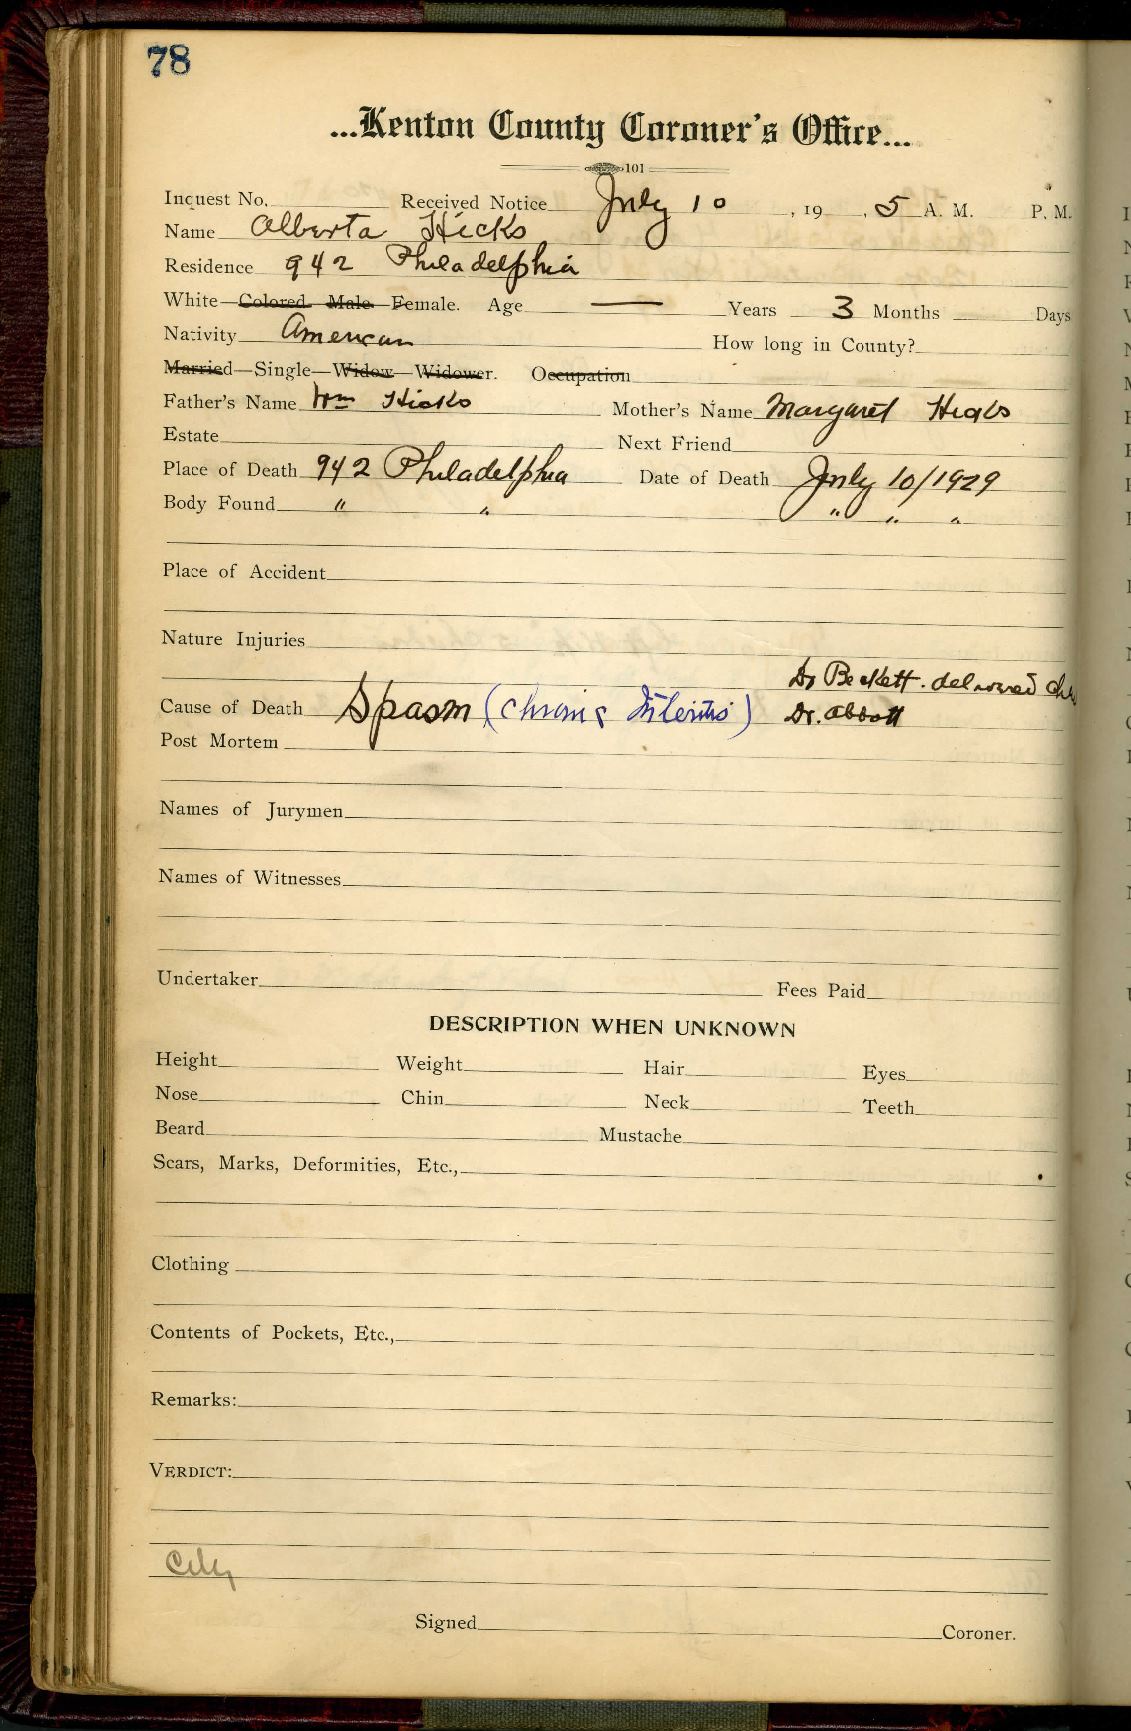 78
...Kenton County Coroner's Office...
101
Inquest No. Received Notice July 10, 19 , 5 A. M. P. M.
Name Alberta Hicks
Residence 942 Philadelphia
White—Colored—Male—Female. Age — Years 3 Months Days
Nativity American How long in County?
Married—Single—Widow—Widower. Occupation
Father's Name Wm Hicks Mother's Name Margaret Hicks
Estate Next Friend
Place of Death 942 Philadelphia Date of Death July 10/1929
Body Found " " " " "
Place of Accident
Nature Injuries
Dr Beckett. delivered
Cause of Death Spasm (Chronic Enteritis) Dr. Abbott
Post Mortem
Names of Jurymen
Names of Witnesses
Undertaker Fees Paid
DESCRIPTION WHEN UNKNOWN
Height Weight Hair Eyes
Nose Chin Neck Teeth
Beard Mustache
Scars, Marks, Deformities, Etc.,
Clothing
Contents of Pockets, Etc.,
Remarks:
VERDICT:
City
Signed Coroner.